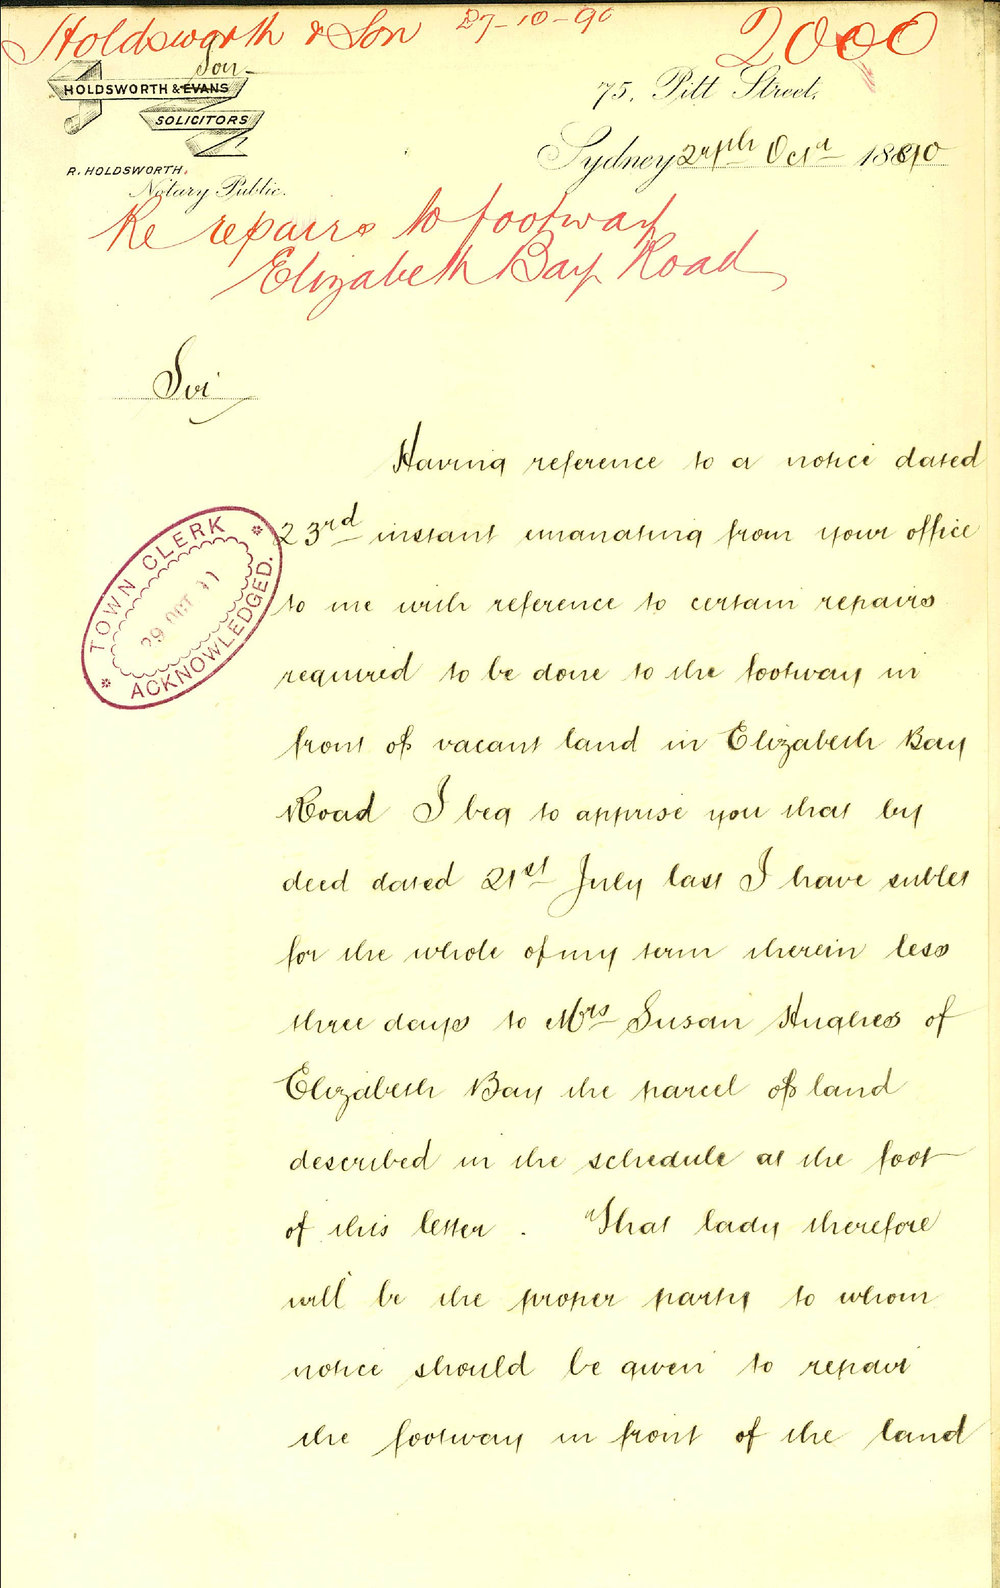 Holdsworth & Son 27-10-90 2000
Son
HOLDSWORTH & EVANS
SOLICITORS
R. HOLDSWORTH.
Notary Public.
75, Pitt Street,
Sydney 27th Octr 1890
Re repairs to footway
Elizabeth Bay Road
Sir
Having reference to a notice dated
23rd instant emanating from your office
to me with reference to certain repairs
required to be done to the footway in
front of vacant land in Elizabeth Bay
Road I beg to apprise you that by
deed dated 21st July last I have sublet
for the whole of my term therein less
three days to Mrs Susan Hughes of
Elizabeth Bay the parcel of land
described in the schedule at the foot
of this letter. That lady therefore
will be the proper party to whom
notice should be given to repair
the footway in front of the land
TOWN CLERK
29 OCT
ACKNOWLEDGED.